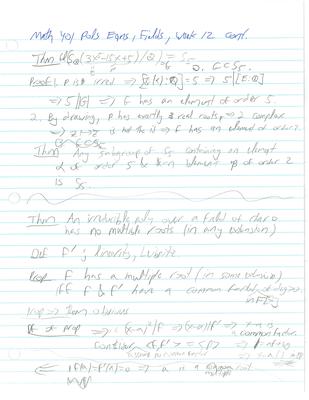 Math 401 Polls Eqns, Fields, Week 12 cont.
Thm Gal(3x⁵-15x+5)/Q) = S₅
G ⊂ S₅
Proof 1. p is irred ⟹ [Q(α):Q] = 5 ⟹ 5 | [E:Q]
⟹ 5 | |G| ⟹ G has an element of order 5
2. By drawing, p has exactly 3 real roots, ⟹ 2 complex
⟹ z ↦ z̄ is not the id ⟹ G has an element of order 2
Thm Any subgroup of S₅ containing an element
α of order 5 & an element β of order 2
is S₅.
Thm An irreducible poly over a field of char 0
has no multiple roots (in any extension)
Def F' ; linearity, Leibnitz.
Prop F has a multiple root (in some extension)
iff F & F' have a common factor of deg>0
in F[x]
Prop ⟹ Thm obvious
Pf of prop ⟹ : (x-a)²|F ⟹ (x-a)|F' ⟹ x-a is
a common factor
Consider <F,F'> =
assume no common factor
⟸ F(a)=F'(a)=0 ⟹ a is a
multiple